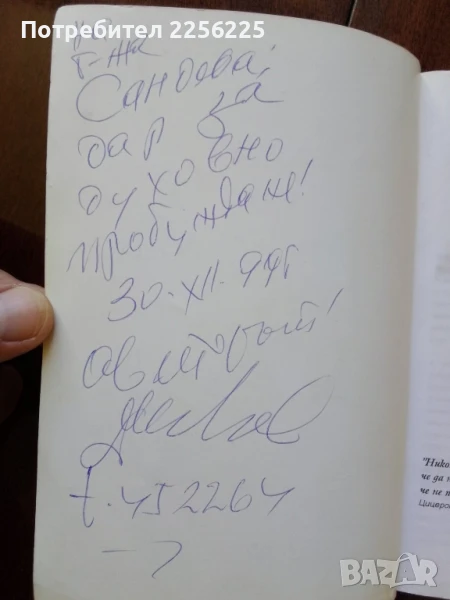 Потребител 2256225
На
г-жа
Сандева!
дар за
духовно
пробуждане!
30.XII.99г
авторът!
т. 452264
"Нико
че да н
че не п
Цицеро
BAZAR